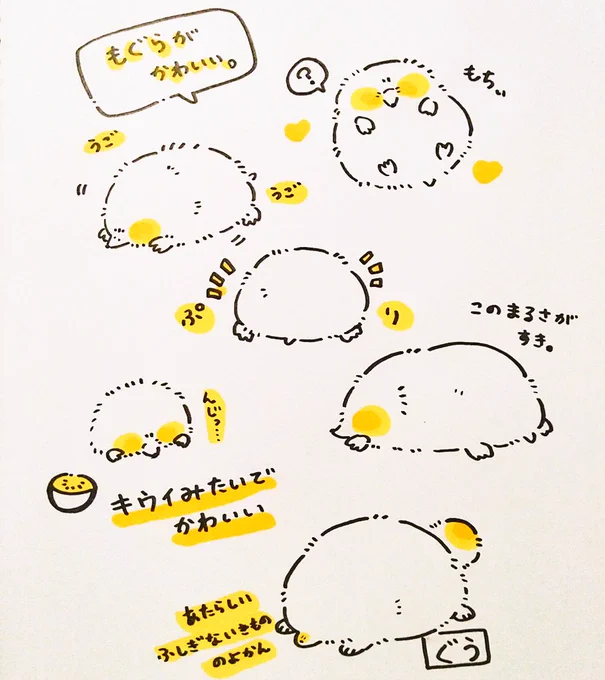 もぐらが
かわいい。
?
もちぃ
うご
うご
ぷ
り
このまるさが
すき。
んじっ…
キウイみたいで
かわいい
あたらしい
ふしぎないきもの
のよかん
ぐう